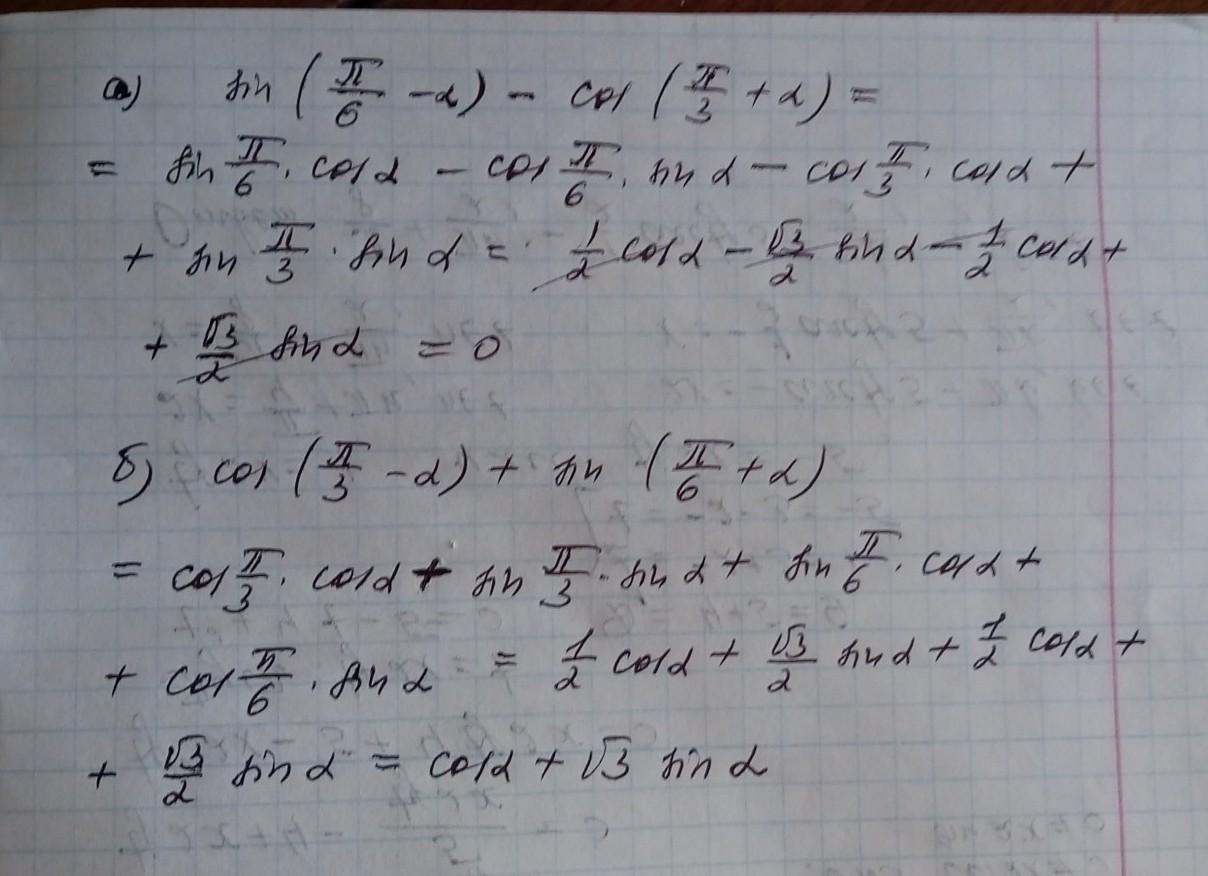 а) sin (π/6 - α) - cos (π/3 + α) =
= sin π/6 · cos α - cos π/6 · sin α - cos π/3 · cos α +
+ sin π/3 · sin α = 1/2 cos α - √3/2 sin α - 1/2 cos α +
+ √3/2 sin α = 0
б) cos (π/3 - α) + sin (π/6 + α)
= cos π/3 · cos α + sin π/3 · sin α + sin π/6 · cos α +
+ cos π/6 · sin α = 1/2 cos α + √3/2 sin α + 1/2 cos α +
+ √3/2 sin α = cos α + √3 sin α